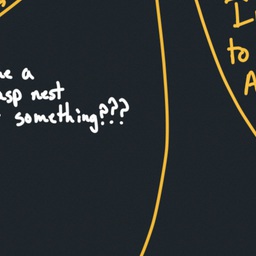 e a
asp nest
something???
to